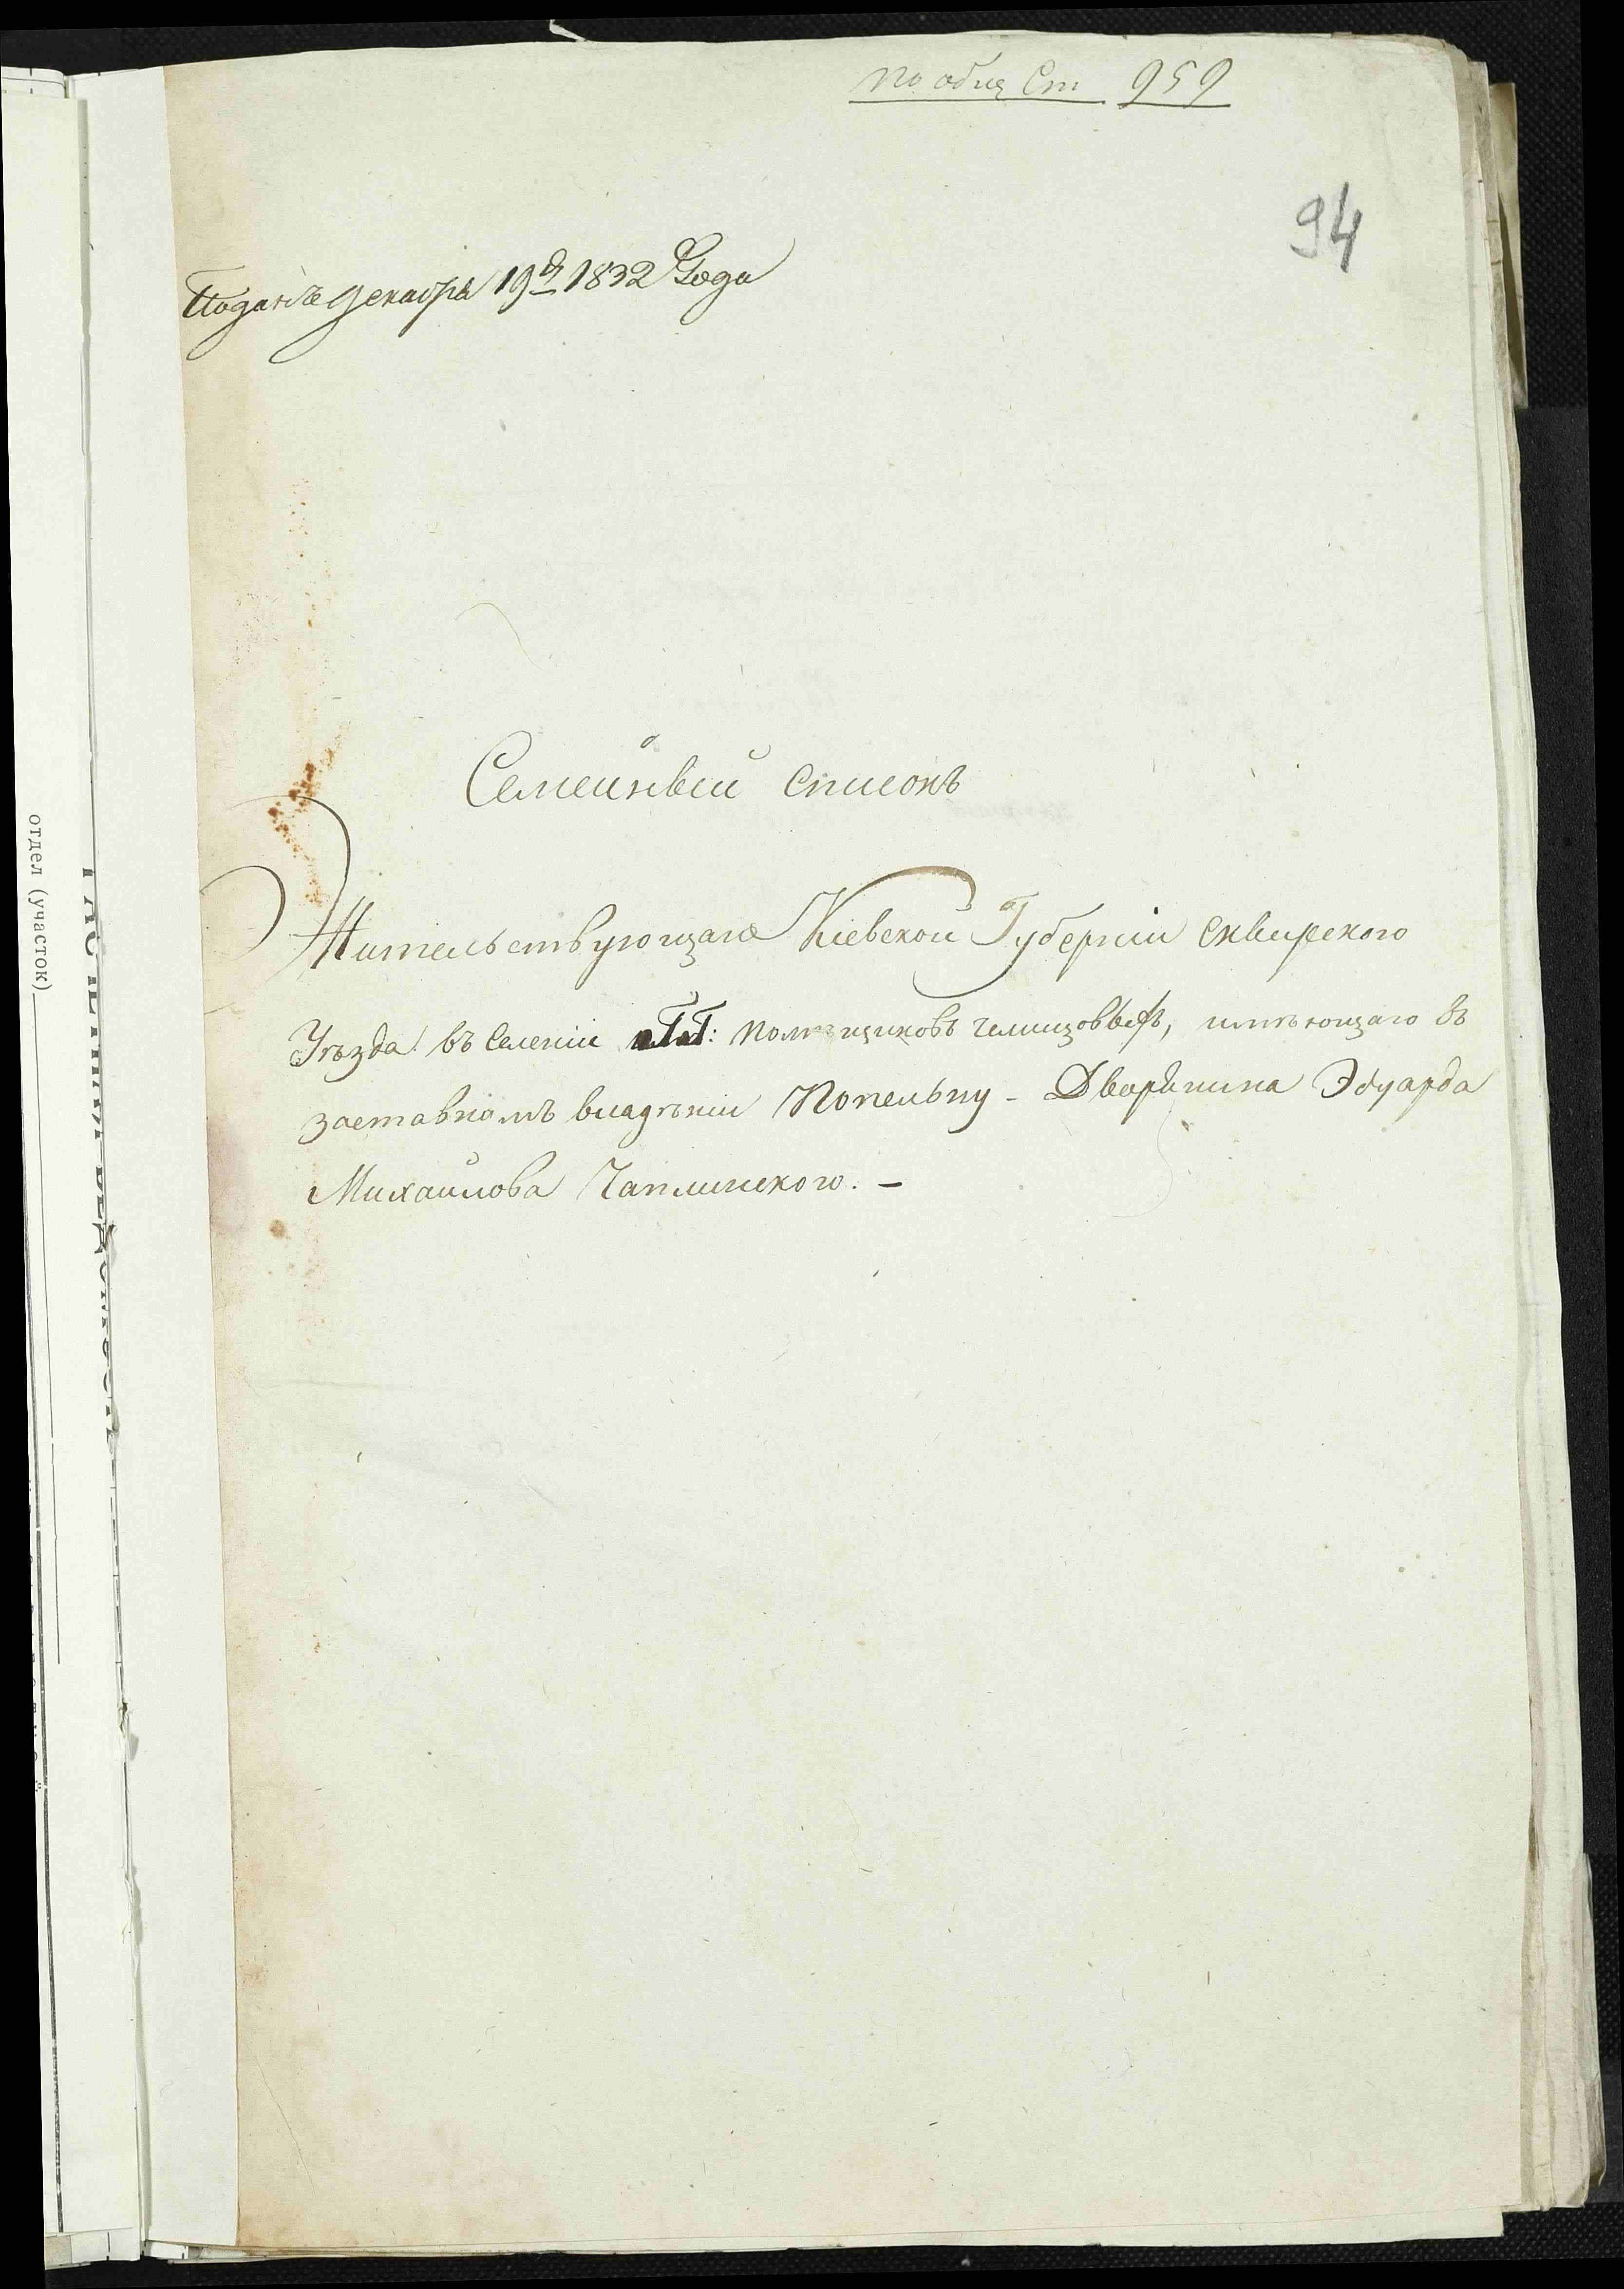 По общ Ст 959
94
Поданъ декабря 19д 1832 Года
Семейный списокъ
Жительствующаго Кіевской Губерніи сквирского
Уѣзда въ селеніи ГГ: помѣщиковъ имѣющаго въ
заставномъ владѣніи Попельну - Дворянина Эдуарда
Михайлова Чаплинского. -
отдел (участок)